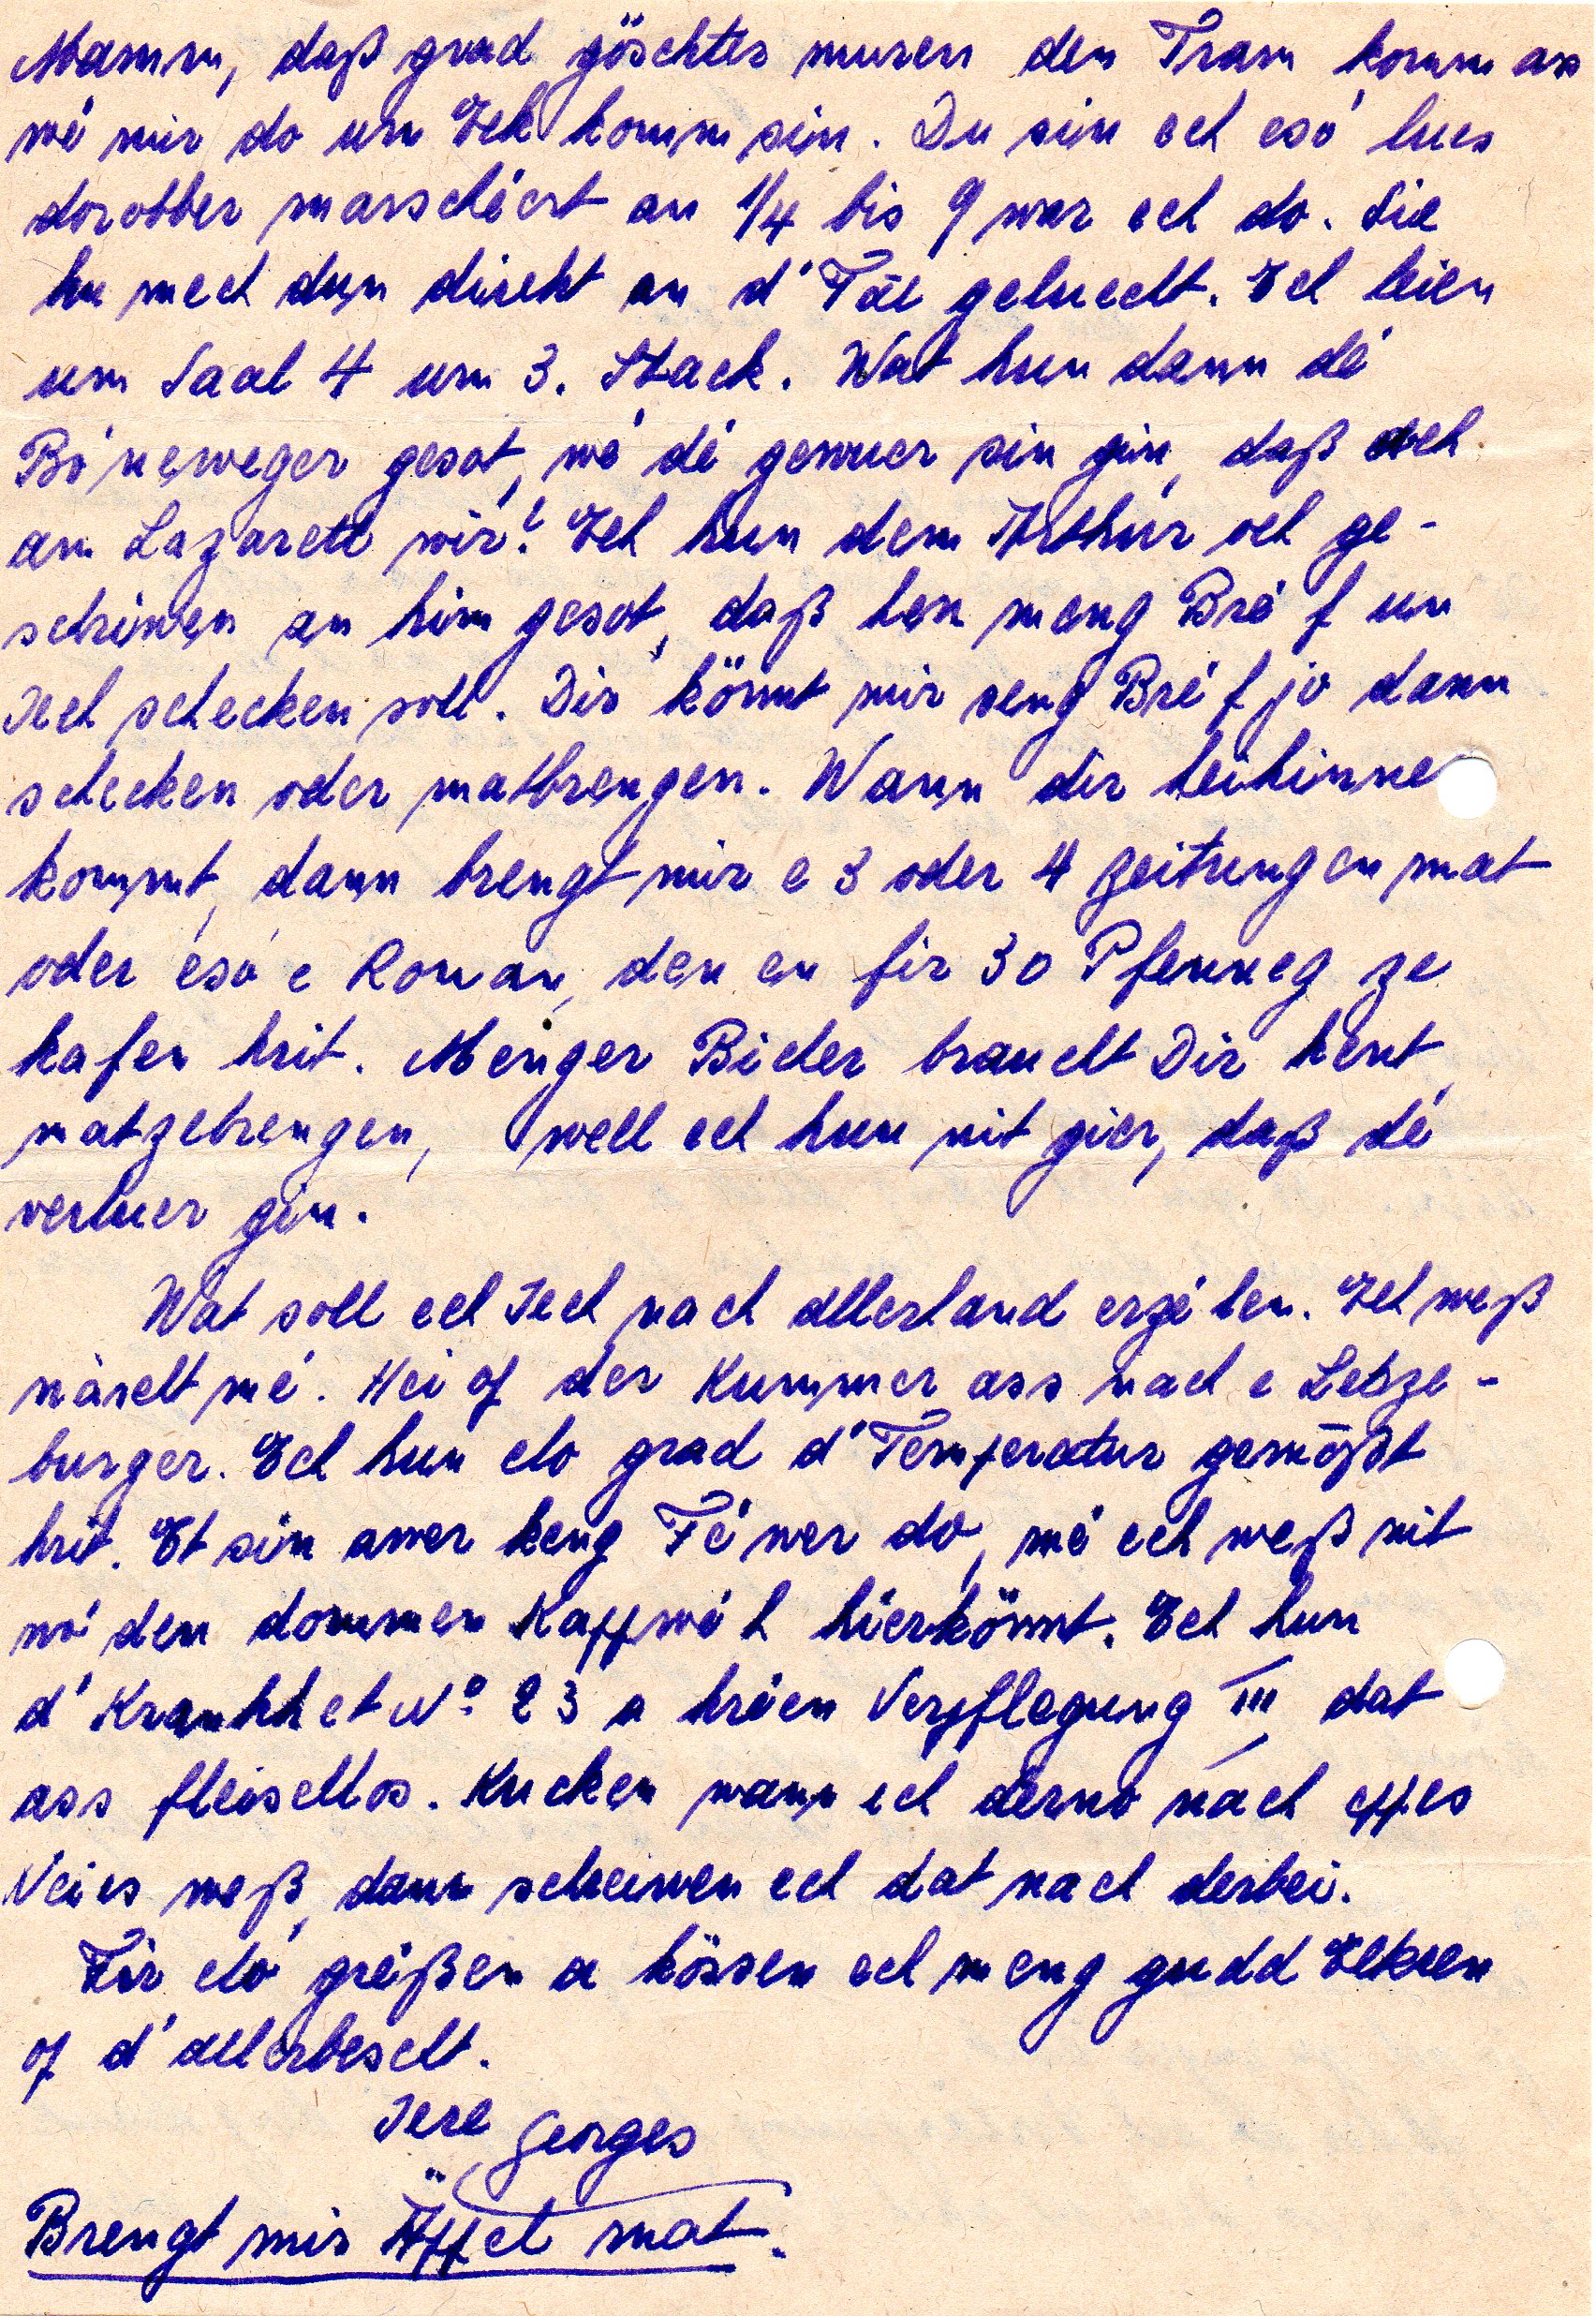 Mamm, daß grad göschter muren den Tram komm as
wé mir do un Eck komm sin. Du sin ech esó lues
dorobber marschéert an 1/4 bis 9 war ech do. Sie
hu mech dun direkt an d'Fäl geluecht. Ech leien
um Saal 4 um 3. Stack. Wat hun dann dé
Bóneweger gesot, wé dé gewuer sin gin, daß ech
am Lazarett wir? Ech hun dem Arthur och ge-
schriwen an him gesot, daß hen meng Bréf un
Iech schecken soll. Dir könnt mir seng Bréf jo dann
schecken oder matbrengen. Wann dir heihinner
kommt, dann brengt mir e 3 oder 4 Zeitungen mat
oder esó e Roman, den en fir 30 Pfenneg ze
kafen krit. Menger Bicher braucht Dir kent
matzebrengen, well ech hun nit gier, daß dé
verluer gin.
Wat soll ech Iech nach allerhand erzélen. Ech weß
näischt mé. Hei of der Kummer ass nach e Letze-
burger. Ech hun elo grad d'Temperatur gemößt
krit. Et sin awer keng Féwer do, mé ech weß nit
wó den dommen Kappwéh hierkönnt. Ech hun
d'Krankhet No 23 a kréen Verpflegung III dat
ass fleischlos. Kucken wann ech derno nach eppes
Neies weß, dann schreiwen ech dat nach derbei.
Fir eló gréßen a kössen ech meng gudd Elteren
of d'allerbescht.
Iere Georges
Brengt mir Äppel mat.